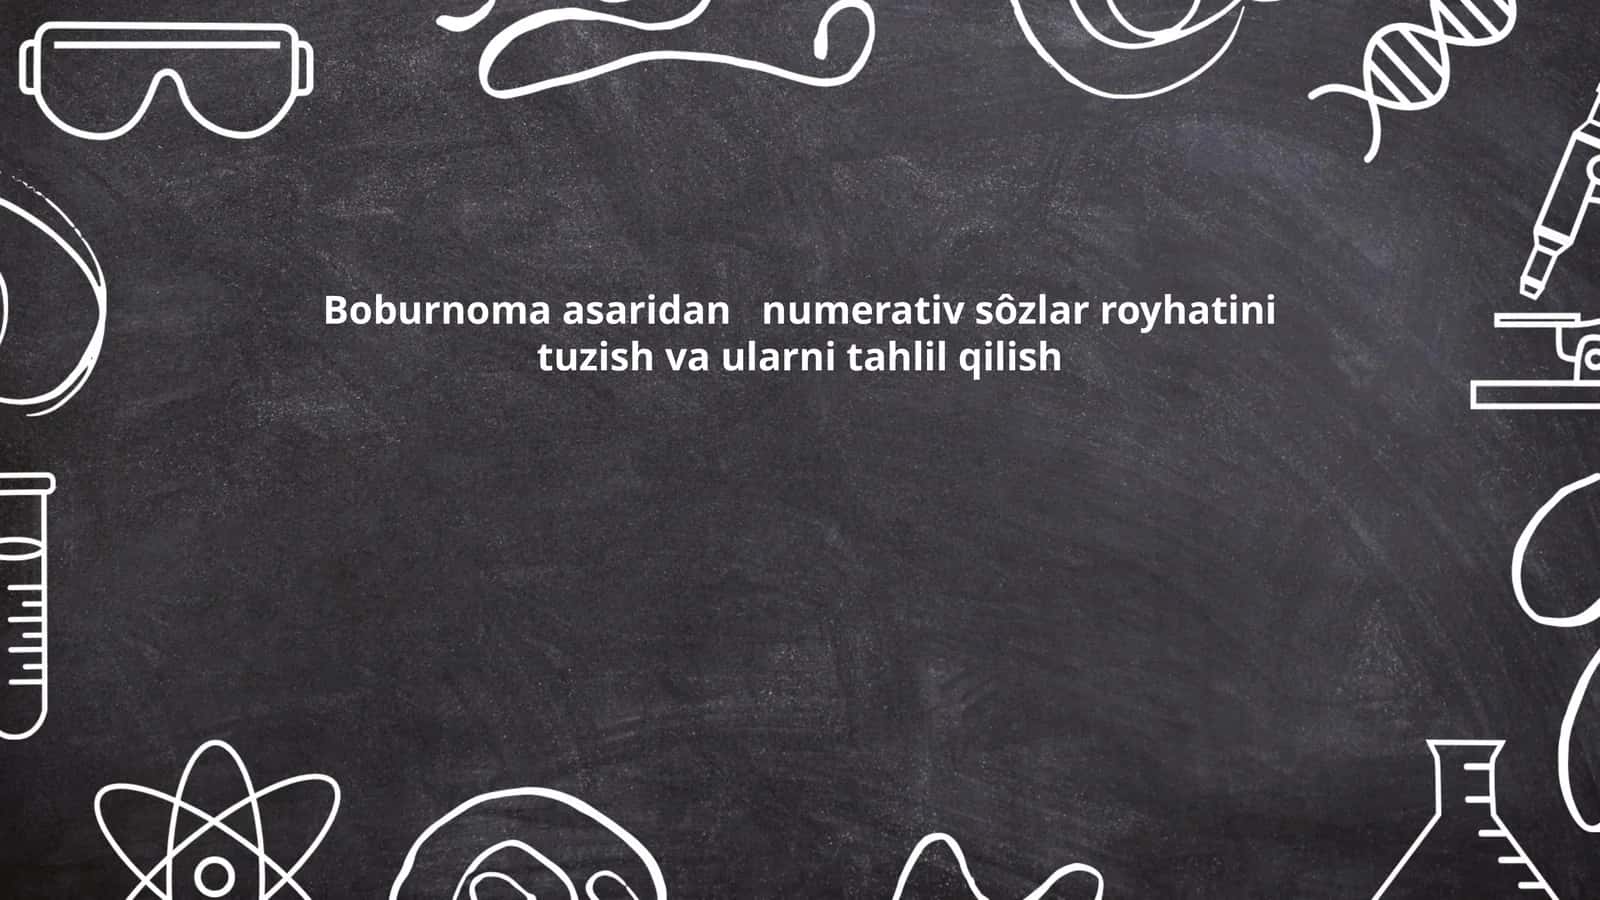 Boburnoma asaridan   numerativ sôzlar royhatini
tuzish va ularni tahlil qilish